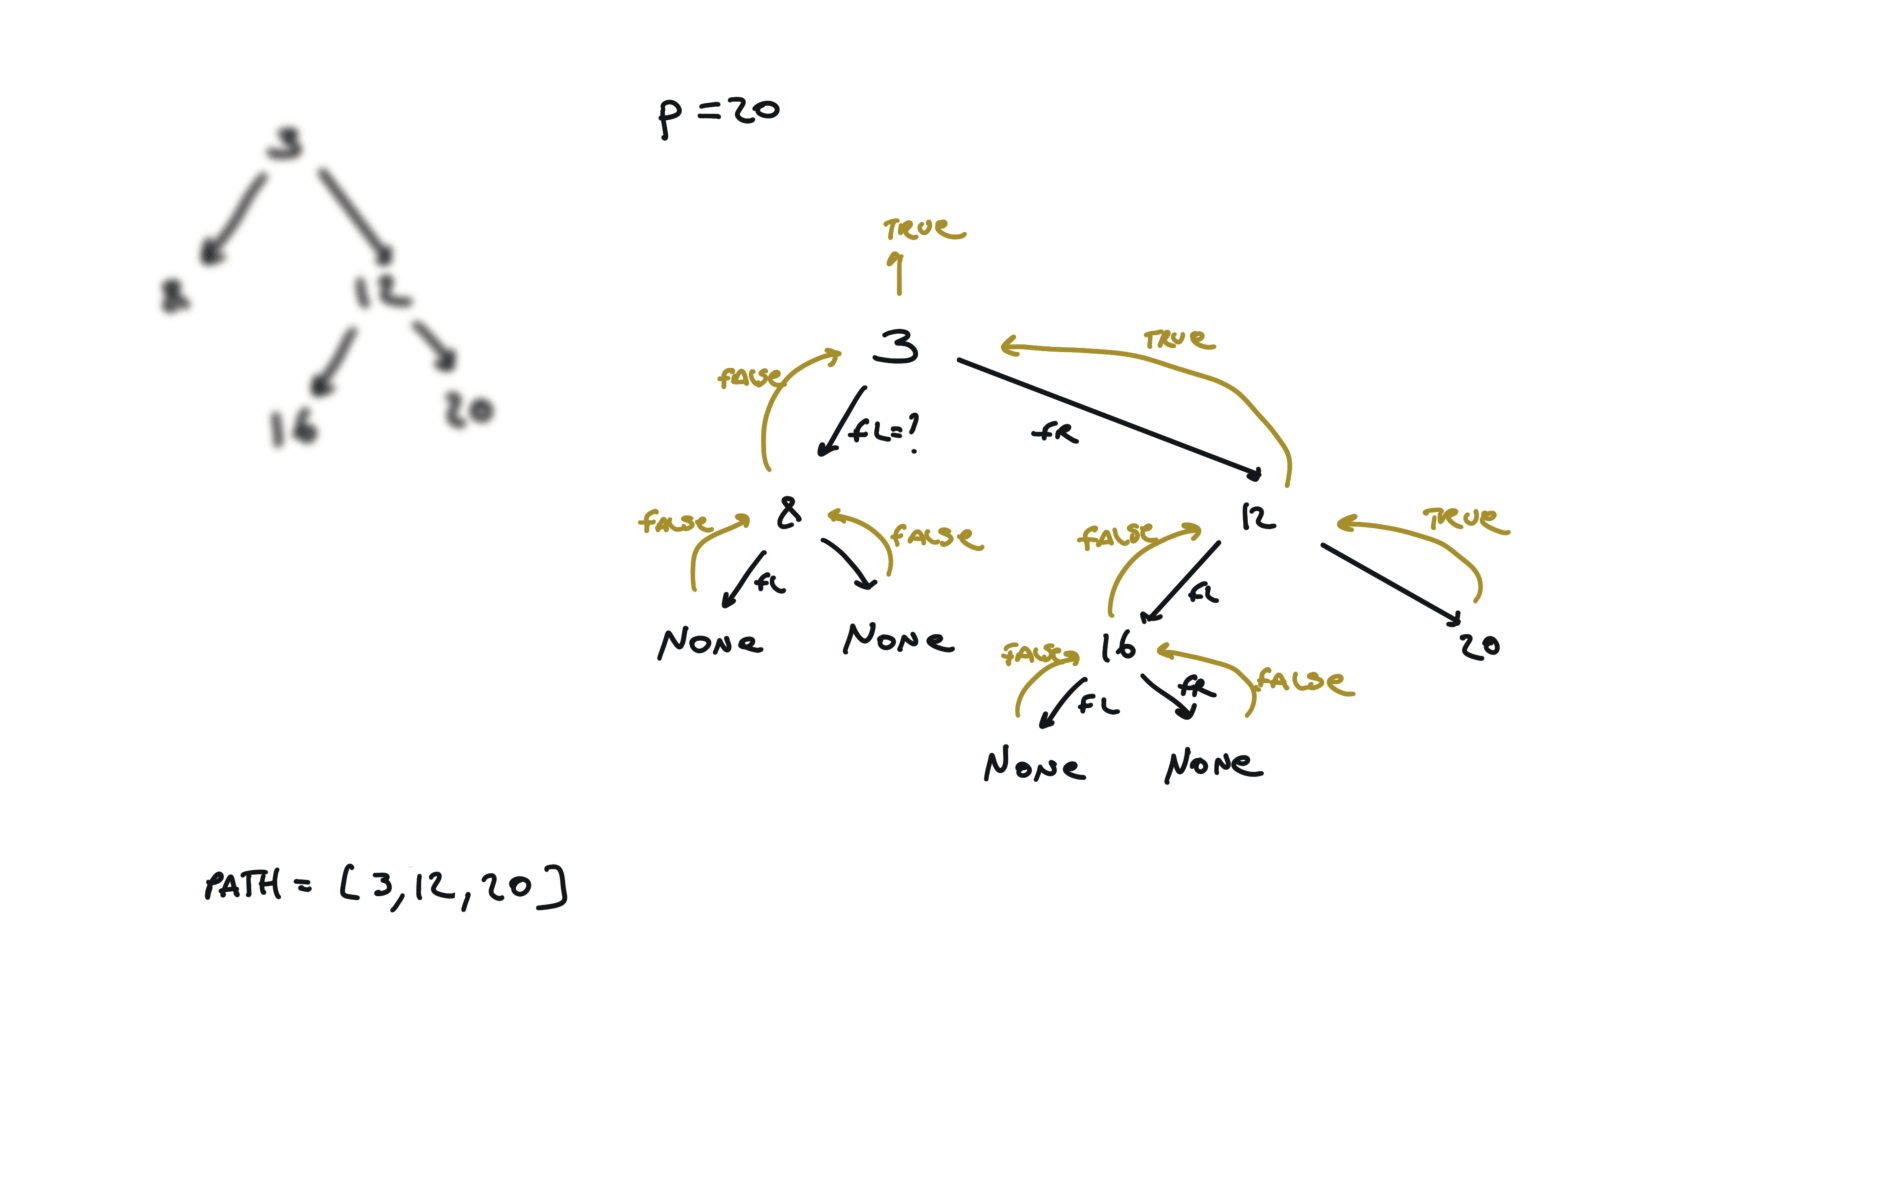 p = 20
3
8
12
16
20
TRUE
3
TRUE
FALSE
fL=?
fR
8
12
FALSE
FALSE
FALSE
TRUE
fL
fL
None
None
16
20
FALSE
FALSE
fL
fR
None
None
PATH = [3,12,20]